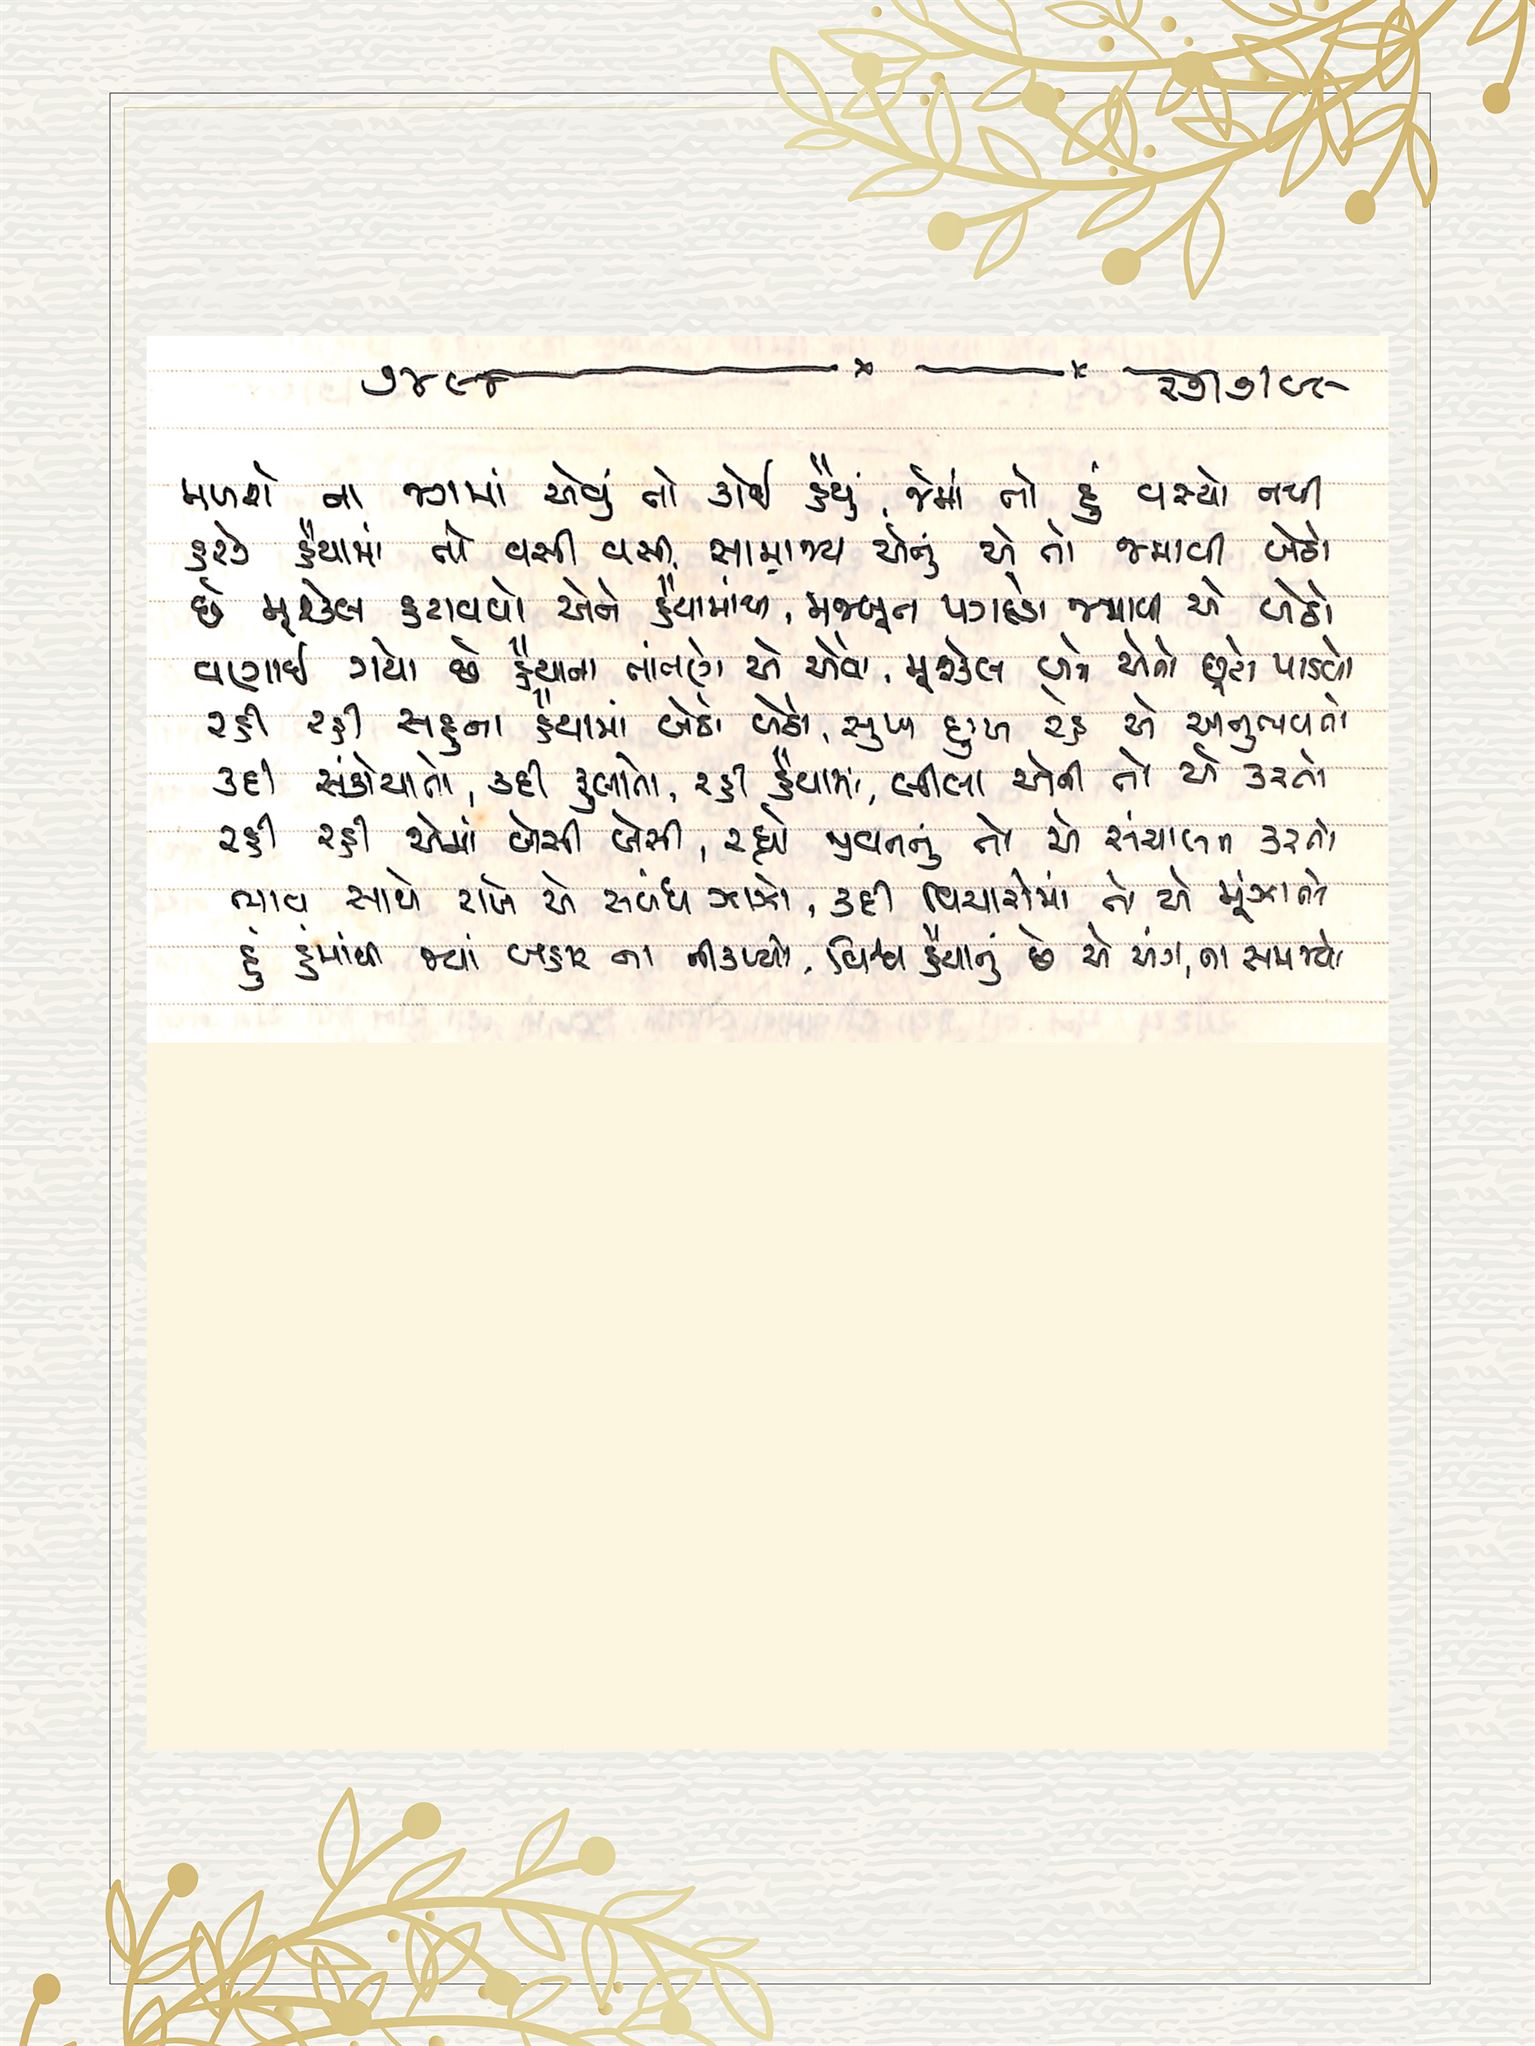 ૭૪૯૪ ૨૭।૭।૯૮
મળશે ના જગમાં એવું તો કોઈ હૈયું, જેમાં તો હું વસ્યો નથી
હરેક હૈયામાં તો વસી વસી, સામ્રાજ્ય એનું એ તો જમાવી બેઠો
છે મૂશ્કેલ હટાવવો એને હૈયામાંથી, મજબૂત પગદંડો જમાવી એ બેઠો
વણાઈ ગયો છે હૈયાના તાંતણે એ એવો, મૂશ્કેલ બને એને છૂટો પાડવો
રહી રહી સહુના હૈયામાં બેઠો બેઠો, સુખ દુઃખ રહે એ અનુભવતો
કદી સંકોચાતો, કદી ફુલાતો, રહી હૈયામાં, લીલા એની તો એ કરતો
રહી રહી એમાં બેસી બેસી, રહ્યો જીવનનું તો એ સંચાલન કરતો
ભાવ સાથે રાખે એ સબંધ ઝાઝો, કદી વિચારોમાં તો એ મૂંઝાતો
હું હુંમાંથી જ્યાં બહાર ના નીકળ્યો, વિશ્વ હૈયાનું છે એ અંગ, ના સમજ્યો